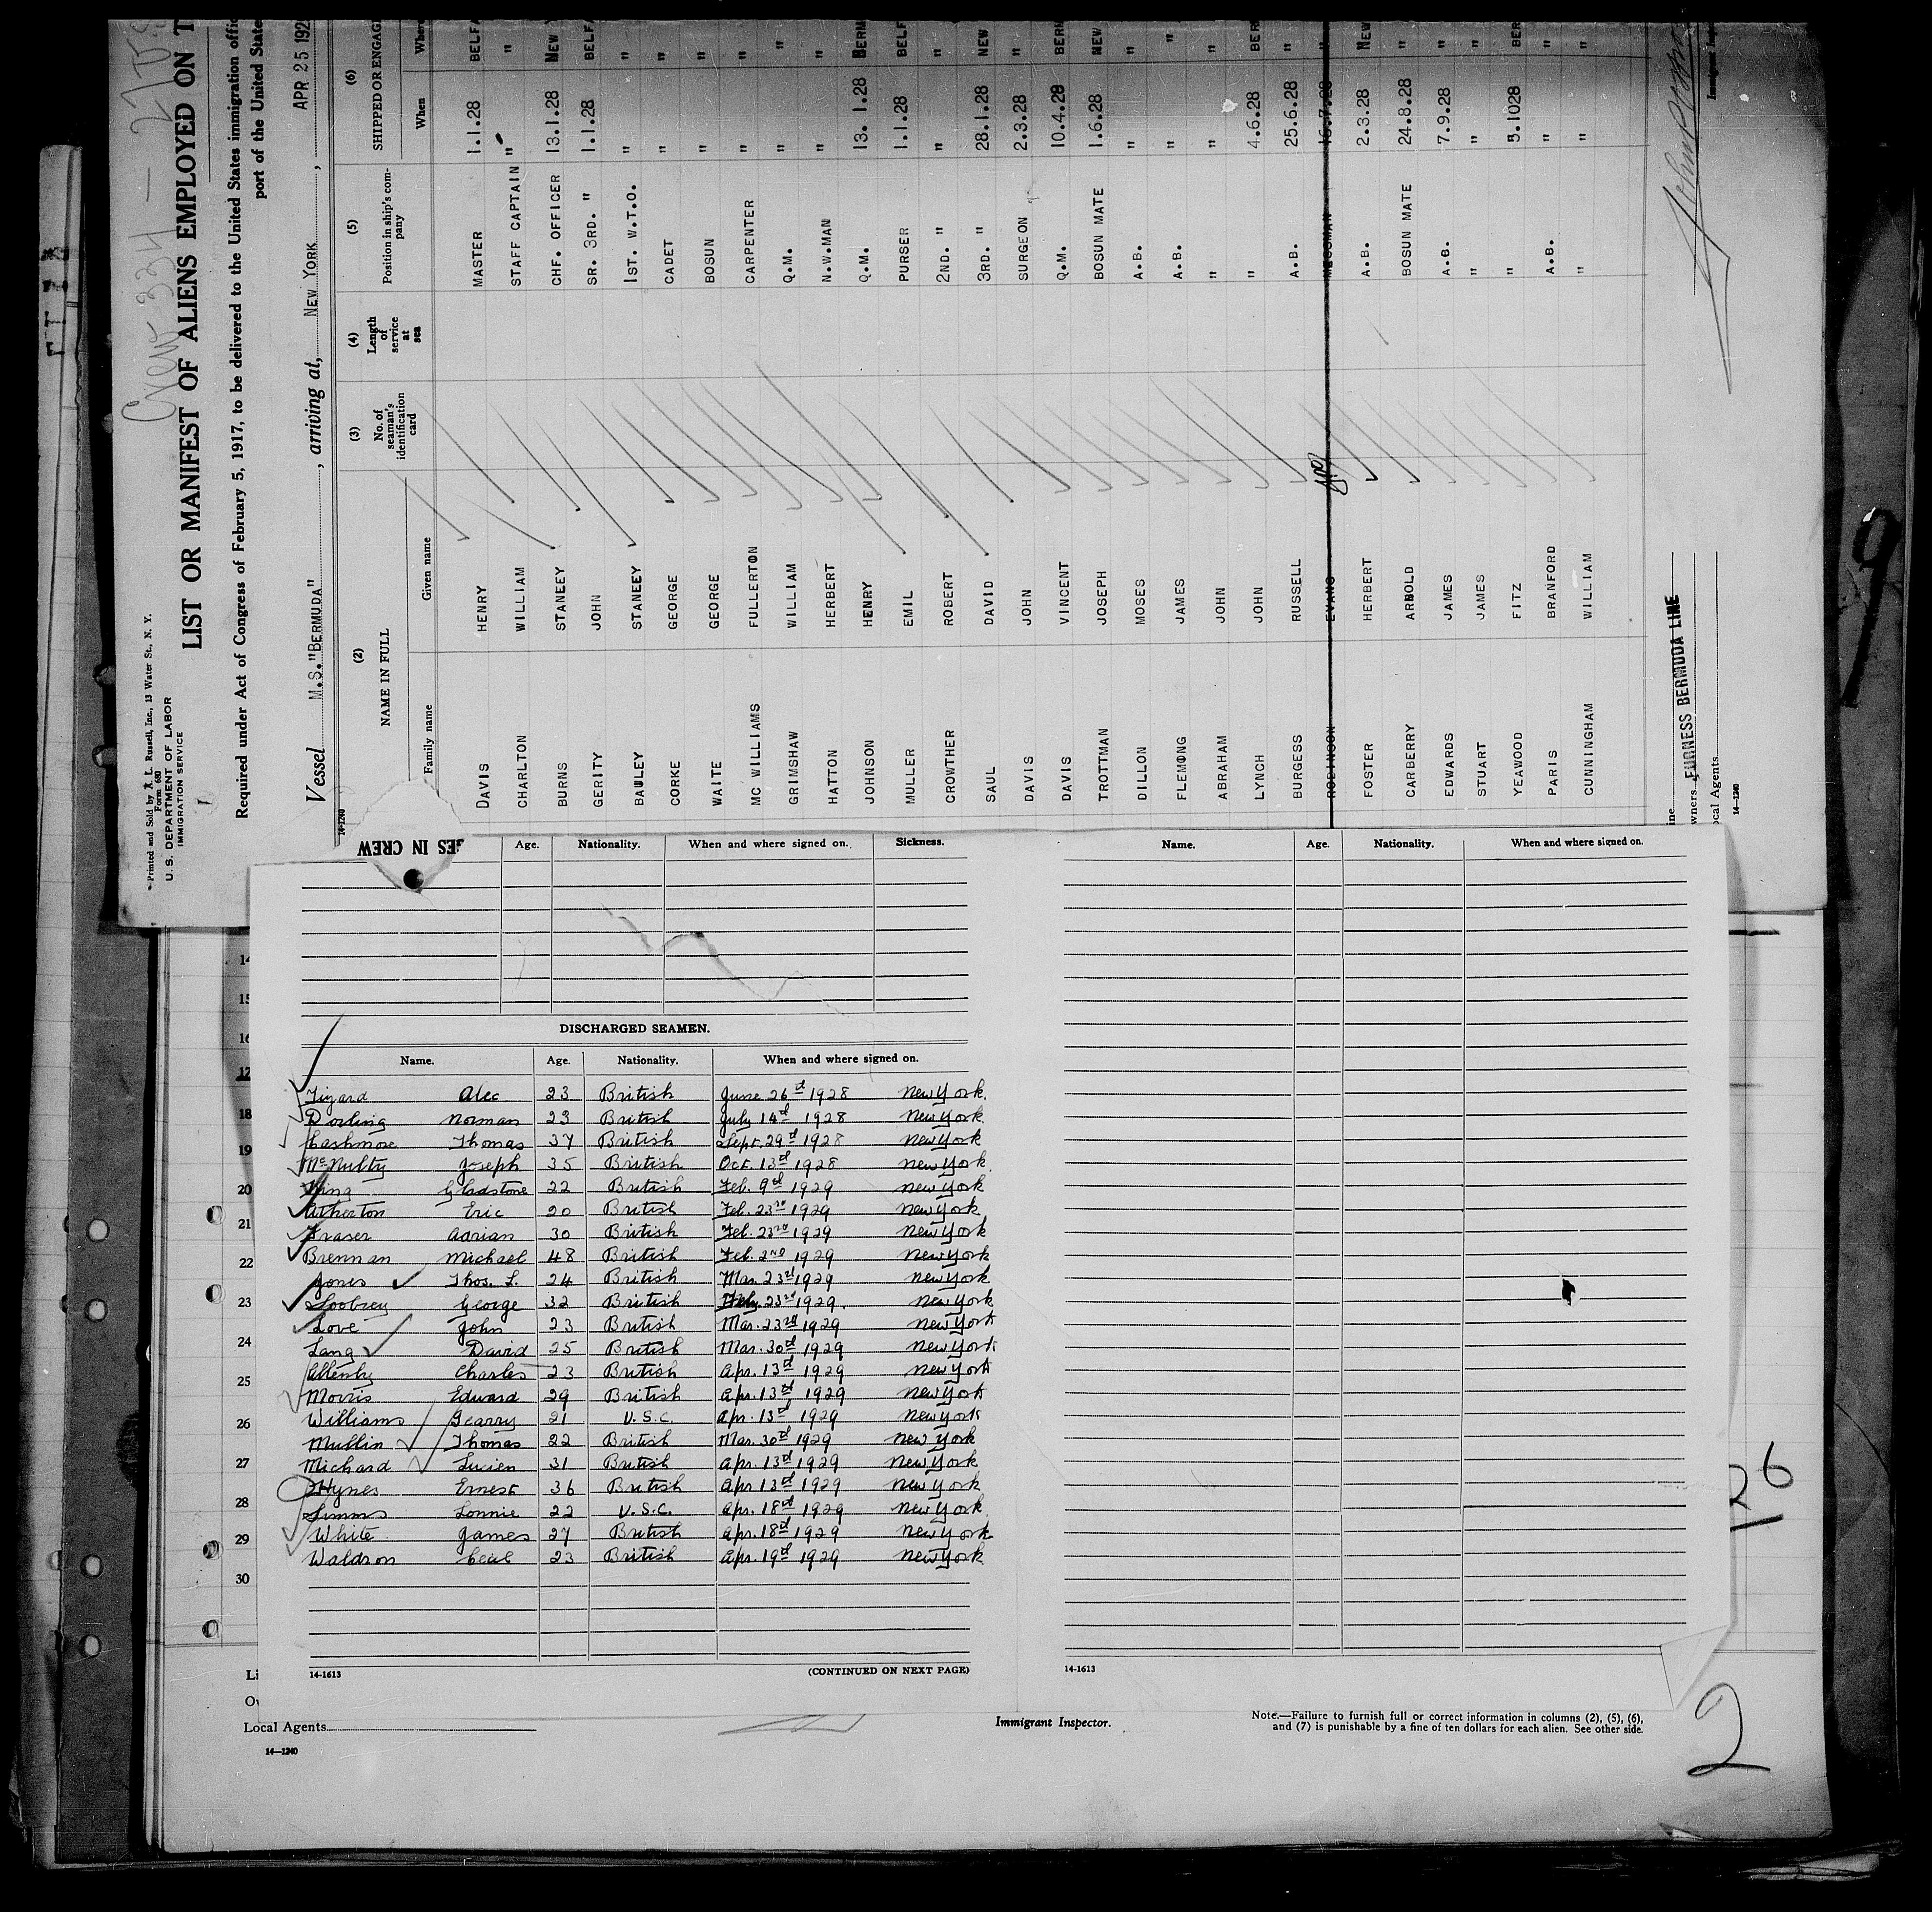 Printed and Sold by A. L. Russell, Inc., 13 Water St., N. Y.
Form 680
U. S. DEPARTMENT OF LABOR
IMMIGRATION SERVICE
Crew 334
LIST OR MANIFEST OF ALIENS EMPLOYED ON T
Required under Act of Congress of February 5, 1917, to be delivered to the United States immigration offic
port of the United State
Vessel M.S."BERMUDA", arriving at, NEW YORK, APR 25 192
(2) (3) (4) (5) (6)
NAME IN FULL No. of seaman's identification card Length of service at sea Position in ship's company SHIPPED OR ENGAG
Family name Given name When Wher
DAVIS HENRY MASTER 1.1.28 BELFA
CHARLTON WILLIAM STAFF CAPTAIN " "
BURNS STANEEY CHF. OFFICER 13.1.28 NEW
GERITY JOHN SR. 3RD. " 1.1.28 BELF
BAWLEY STANEEY 1ST. W.T.O. " "
CORKE GEORGE CADET " "
WAITE GEORGE BOSUN " "
MC WILLIAMS FULLERTON CARPENTER " "
GRIMSHAW WILLIAM Q.M. " "
HATTON HERBERT N.W.MAN " "
JOHNSON HENRY Q.M. 13.1.28 BERM
MULLER EMIL PURSER 1.1.28 BELF
CROWTHER ROBERT 2ND. " " "
SAUL DAVID 3RD. " 28.1.28 NEW
DAVIS JOHN SURGEON 2.3.28 "
DAVIS VINCENT Q.M. 10.4.28 BERM
TROTTMAN JOSEPH BOSUN MATE 1.6.28 NEW
DILLON MOSES A.B. " "
FLEMONG JAMES A.B. " "
ABRAHAM JOHN " " "
LYNCH JOHN " 4.6.28 BER
BURGESS RUSSELL A.B. 25.6.28 "
ROBINSON EVANS MESSMAN 16.7.28 "
FOSTER HERBERT A.B. 2.3.28 NEW
CARBERRY ARNOLD BOSUN MATE 24.8.28 "
EDWARDS JAMES A.B. 7.9.28 "
STUART JAMES " " "
YEAWOOD FITZ " 5.1028 BER
PARIS BRANFORD A.B. " "
CUNNINGHAM WILLIAM " " "
ine
wners FURNESS BERMUDA LINE
ocal Agents
14—1240
Immigrant Insp
14-1240
GES IN CREW
Age. Nationality. When and where signed on. Sickness.
Name. Age. Nationality. When and where signed on.
DISCHARGED SEAMEN.
Name. Age. Nationality. When and where signed on.
Tizard Alec 23 British June 26th 1928 New York.
Dorling Norman 23 British July 14th 1928 New York.
Cashmore Thomas 37 British Sept. 29th 1928 New York
McNulty Joseph 35 British Oct. 13th 1928 New York.
King Gladstone 22 British Feb. 9th 1929 New York
Atherton Eric 20 British Feb. 23rd 1929 New York
Fraser Adrian 30 British Feb. 23rd 1929 New York
Brennan Michael 48 British Feb. 2nd 1929 New York
Jones Thos. L. 24 British Mar. 23rd 1929 New York
Loobrey George 32 British 23rd 1929. New York
Love John 23 British Mar. 23rd 1929 New York
Lang David 25 British Mar. 30th 1929 New York
Allenby Charles 23 British Apr. 13th 1929 New York
Morris Edward 29 British Apr. 13th 1929 New York
Williams 21 U.S.C. Apr. 13th 1929 New York
Mullin Thomas 22 British Mar. 30th 1929 New York
Michard Lucien 31 British Apr. 13th 1929 New York
Hynes Ernest 36 British Apr 13th 1929 New York
Simms Lonnie 22 U.S.C. Apr. 18th 1929 New York
White James 27 British Apr. 18th 1929 New York
Waldron Cecil 23 British Apr. 19th 1929 New York
14-1613 (CONTINUED ON NEXT PAGE)
14-1613
14
15
16
17
18
19
20
21
22
23
24
25
26
27
28
29
30
Li
Ow
Local Agents
Immigrant Inspector.
Note.—Failure to furnish full or correct information in columns (2), (5), (6),
and (7) is punishable by a fine of ten dollars for each alien. See other side.
14—1240
9
26
2